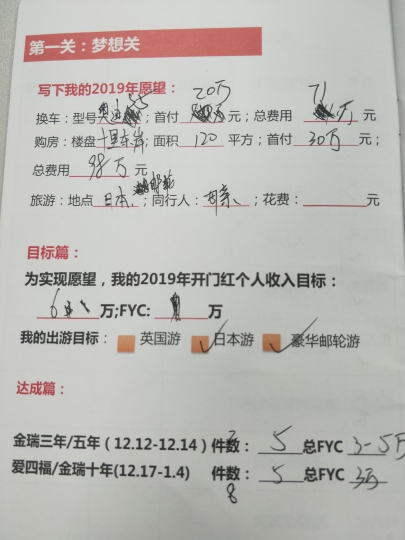 第一关：梦想关
写下我的2019年愿望：
换车：型号 ；首付 20万 元；总费用 71万 元
购房：楼盘 十里东岸 ；面积 120 平方；首付 30万 元；
总费用 98万 元
旅游：地点 日本、邮轮 ；同行人： ；花费： 元
目标篇：
为实现愿望，我的2019年开门红个人收入目标：
6 万;FYC: 万
我的出游目标： 英国游 ✓日本游 ✓豪华邮轮游
达成篇：
金瑞三年/五年（12.12-12.14）件数： 5 总FYC 3-5万
爱四福/金瑞十年(12.17-1.4) 件数： 5 总FYC 3万
8